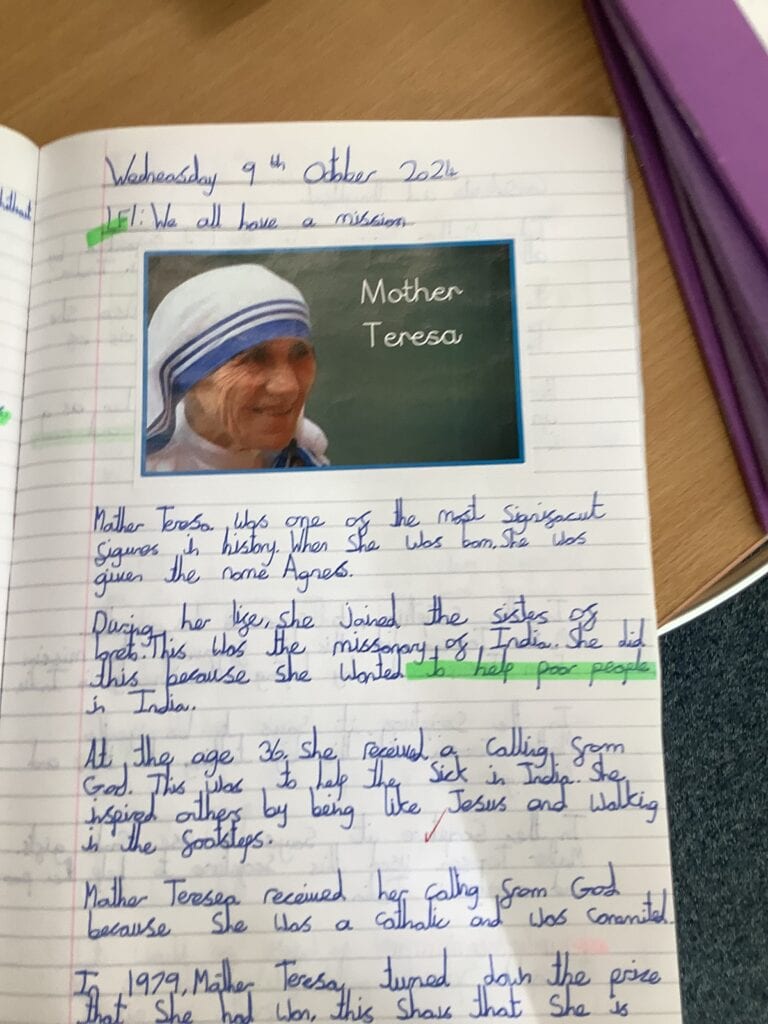 Wednesday 9th October 2024
LFI: We all have a mission
Mother
Teresa
Mother Teresa was one of the most significut
figures in history. When she was born, she was
given the name Agnes.
During her life, she joined the sisters of
loreto. This was the missonary of India. She did
this because she wanted to help poor people
in India.
At the age 36, she received a calling from
God. This was to help the sick in India. She
inspired others by being like Jesus and walking
in the footsteps.
Mother Teresea received her calling from God
because she was a catholic and was commited.
In 1979, Mother Teresa turned down the prize
that she had won, this shows that she is